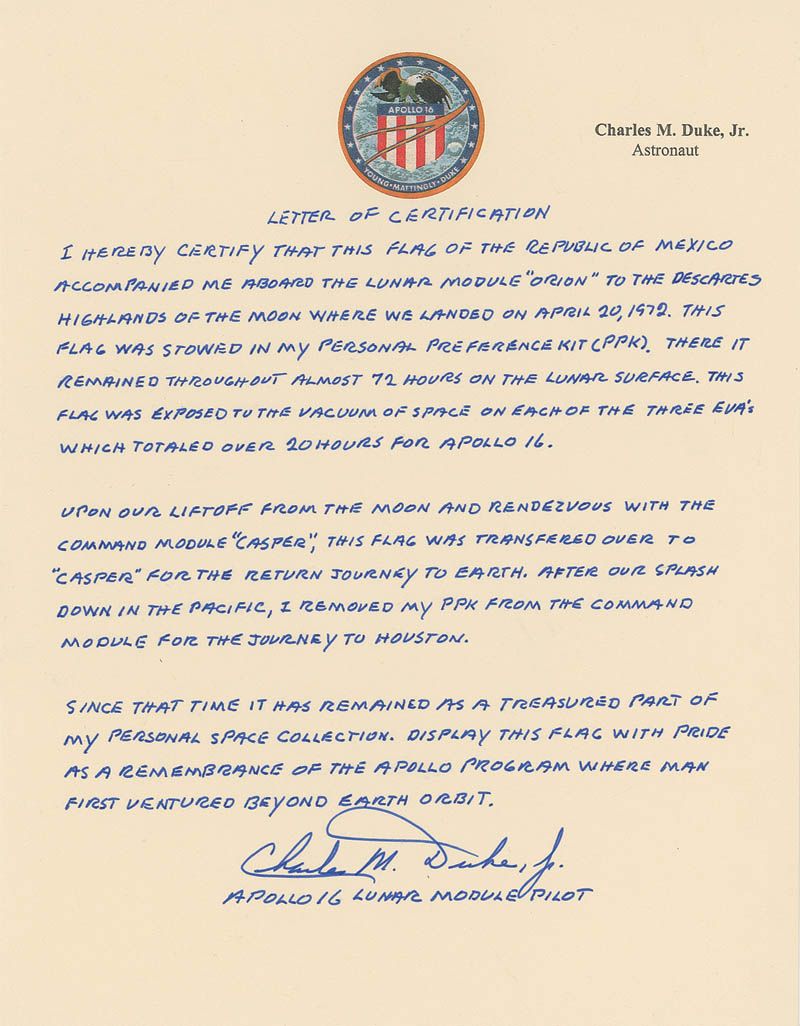 APOLLO 16
YOUNG • MATTINGLY • DUKE
Charles M. Duke, Jr.
Astronaut
LETTER OF CERTIFICATION
I HEREBY CERTIFY THAT THIS FLAG OF THE REPUBLIC OF MEXICO
ACCOMPANIED ME ABOARD THE LUNAR MODULE "ORION" TO THE DESCARTES
HIGHLANDS OF THE MOON WHERE WE LANDED ON APRIL 20, 1972. THIS
FLAG WAS STOWED IN MY PERSONAL PREFERENCE KIT (PPK). THERE IT
REMAINED THROUGHOUT ALMOST 72 HOURS ON THE LUNAR SURFACE. THIS
FLAG WAS EXPOSED TO THE VACUUM OF SPACE ON EACH OF THE THREE EVA's
WHICH TOTALED OVER 20 HOURS FOR APOLLO 16.
UPON OUR LIFTOFF FROM THE MOON AND RENDEZVOUS WITH THE
COMMAND MODULE "CASPER", THIS FLAG WAS TRANSFERED OVER TO
"CASPER" FOR THE RETURN JOURNEY TO EARTH. AFTER OUR SPLASH
DOWN IN THE PACIFIC, I REMOVED MY PPK FROM THE COMMAND
MODULE FOR THE JOURNEY TO HOUSTON.
SINCE THAT TIME IT HAS REMAINED AS A TREASURED PART OF
MY PERSONAL SPACE COLLECTION. DISPLAY THIS FLAG WITH PRIDE
AS A REMEMBRANCE OF THE APOLLO PROGRAM WHERE MAN
FIRST VENTURED BEYOND EARTH ORBIT.
Charles M. Duke, Jr.
APOLLO 16 LUNAR MODULE PILOT